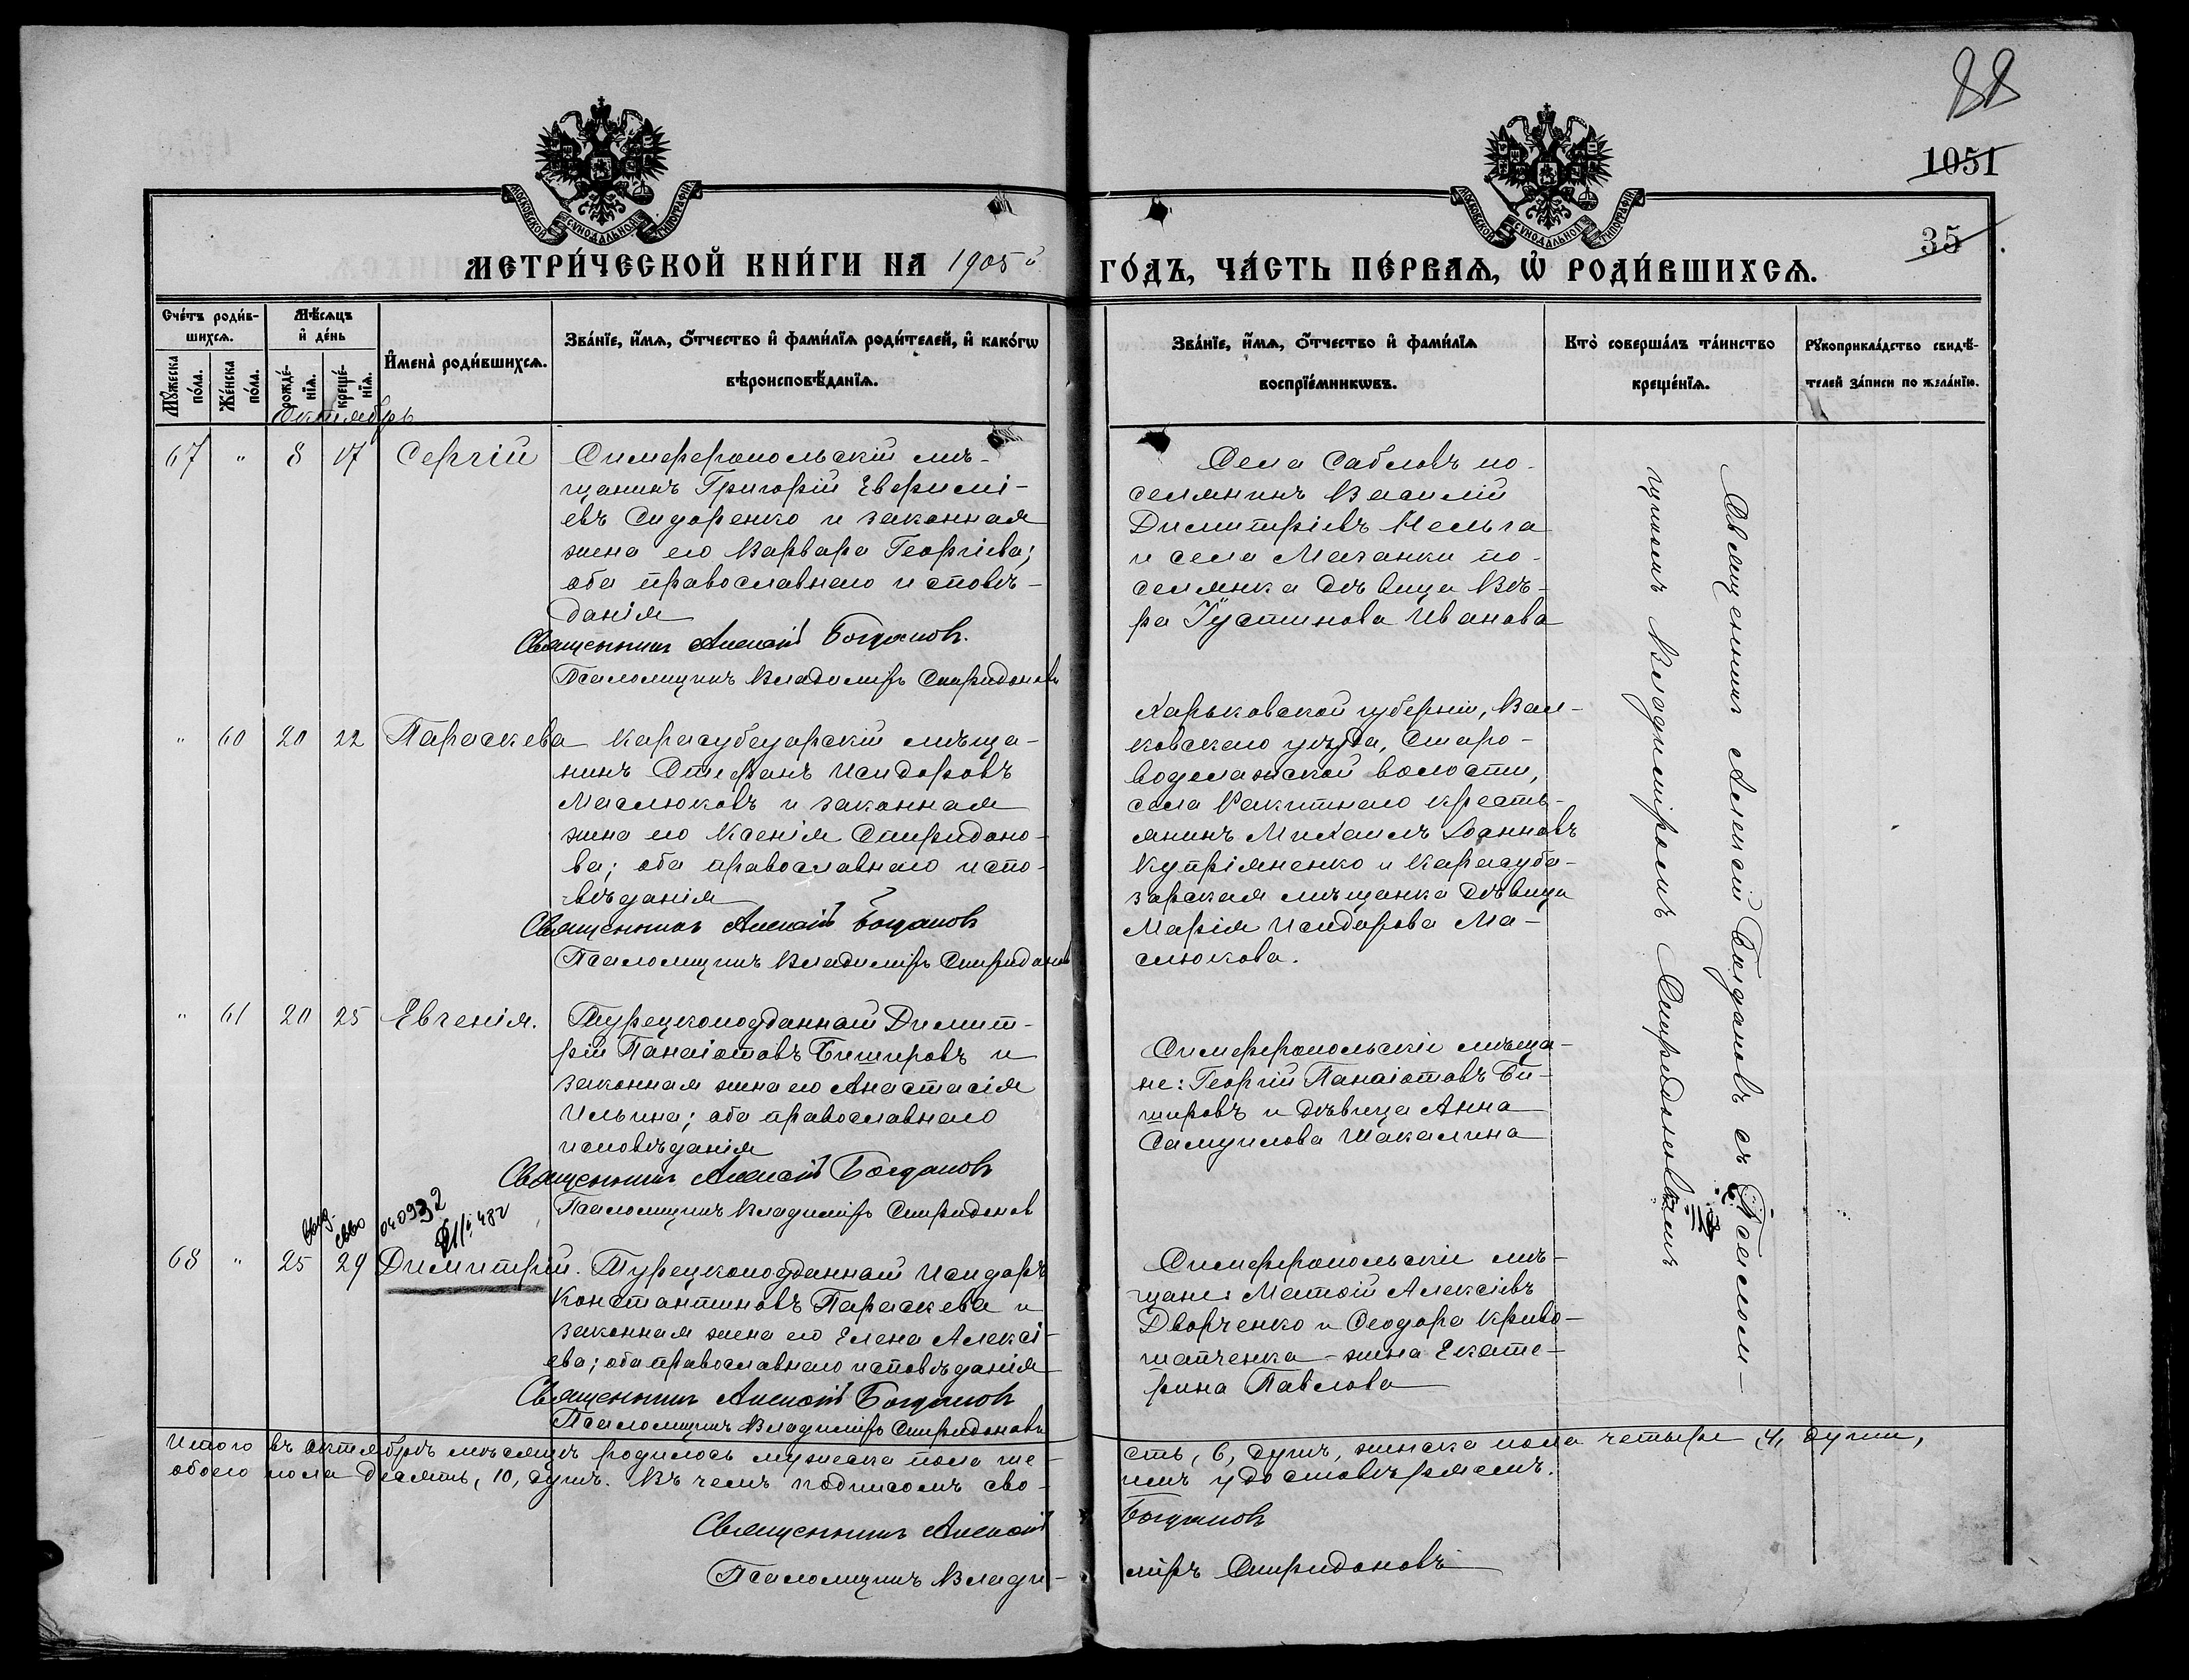 88
1051
35
МОСКОВСКОЙ СѴНОДАЛЬНОЙ ТИПОГРАФІИ
МОСКОВСКОЙ СѴНОДАЛЬНОЙ ТИПОГРАФІИ
МЕТРИ́ЧЕСКОЙ КНИ́ГИ НА 1905й
ГО́ДЪ, ЧА́СТЬ ПЕ́РВАѦ, Ѡ҆ РОДИ́ВШИХСѦ.
Сче́тъ роди́в-
шихсѧ.
Мѣ́сѧцъ
и҆ де́нь
Мꙋ́жеска
по́ла.
Же́нска
по́ла.
рожде́-
нїѧ.
креще́-
нїѧ.
И҆мена̀ роди́вшихсѧ.
Зва́нїе, и҆́мѧ, ѻ҆́тчество и҆ фами́лїѧ роди́телей, и҆ како́гѡ
вѣроисповѣ́данїѧ.
Зва́нїе, и҆́мѧ, ѻ҆́тчество и҆ фами́лїѧ
воспрїе́мникѡвъ.
Кто̀ соверша́лъ та́инство
креще́нїѧ.
Рꙋкоприкла́дство свидѣ́-
телей за́писи по жела́нїю.
Октябрь
67 " 8 17 Сергій
Симферопольскій мѣ-
щанинъ Григорій Евфимі-
евъ Сидоренко и законная
жена его Варвара Георгіева;
оба православнаго исповѣ-
данія
Священникъ Алексій Богдановъ.
Псаломщикъ Владиміръ Спиридоновъ
Села Сабловъ по-
селянинъ Василій
Димитріевъ Кельга
и села Мазанки по-
селянка дѣвица Вѣ-
ра Іустинова Иванова
" 60 20 22 Параскева
Карасубазарскій мѣща-
нинъ Стефанъ Исидоровъ
Маслюковъ и законная
жена его Ксенія Спиридоно-
ва; оба православнаго испо-
вѣданія
Священникъ Алексій Богдановъ
Псаломщикъ Владиміръ Спиридоновъ
Харьковской губерніи, Вал-
ковскаго уѣзда, Старо-
водолажской волости,
села Ракитнаго кресть-
янинъ Михаилъ Іоанновъ
Купріяненко и Карасуба-
зарская мѣщанка дѣвица
Марія Исидорова Ма-
слюкова.
" 61 20 25 Евгенія.
Турецкоподданный Димит-
рій Панаіотовъ Бишировъ и
законная жена его Анастасія
Ильина; оба православнаго
исповѣданія
Священникъ Алексій Богдановъ
Псаломщикъ Владиміръ Спиридонов
Симферопольскіе мѣща-
не: Георгій Панаіотовъ Би-
шировъ и дѣвица Анна
Самуилова Шакалина
выд. свво 040932
68 " 25 29 Димитрій.
Турецкоподданный Исидоръ
Константиновъ Параскева и
законная жена его Елена Алексі-
ева; оба православнаго исповѣданія
Священникъ Алексій Богдановъ
Псаломщикъ Владиміръ Спиридоновъ
Симферопольскіе мѣ-
щане: Матѳій Алексіевъ
Дворченко и Ѳеодора Криво-
шапченка - жена Екате-
рина Павлова
Священникъ Алексій Богдановъ съ Псалом-
щикомъ Владиміромъ Спиридоновымъ
Итого въ октябрѣ мѣсяцѣ родилось мужеска пола ше-
сть, 6, душъ, женска пола четыре, 4, души,
обоего пола десять, 10, душъ. Въ чемъ подписомъ сво-
имъ удостовѣряемъ.
Священникъ Алексій Богдановъ
Псаломщикъ Влади-
міръ Спиридоновъ